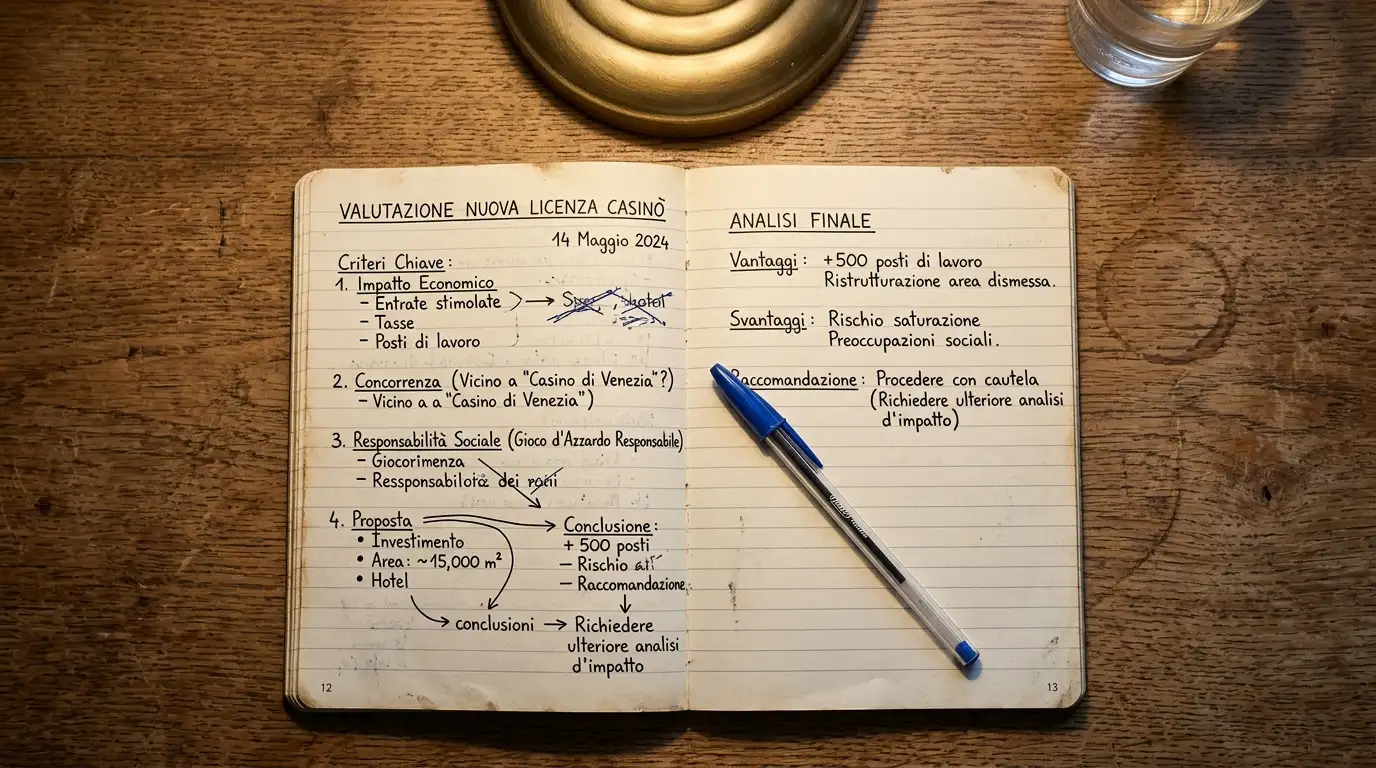 VALUTAZIONE NUOVA LICENZA CASINÒ
14 Maggio 2024
Criteri Chiave:
1. Impatto Economico
– Entrate stimolate
– Tasse
– Posti di lavoro
2. Concorrenza (Vicino a "Casino di Venezia"?)
– Vicino a a "Casino di Venezia")
3. Responsabilità Sociale (Gioco d'Azzardo Responsabile)
– Giocorimenza
– Ressponsabilotà dei
4. Proposta
• Investimento
• Area: ~15,000 m²
• Hotel
Conclusione:
+ 500 posti
– Rischio
– Raccomandazione
conclusioni → Richiedere
ulteriore analisi
d'impatto
12
ANALISI FINALE
Vantaggi: +500 posti di lavoro
Ristrutturazione area dismessa.
Svantaggi: Rischio saturazione
Preoccupazioni sociali.
Raccomandazione: Procedere con cautela
(Richiedere ulteriore analisi
d'impatto)
13